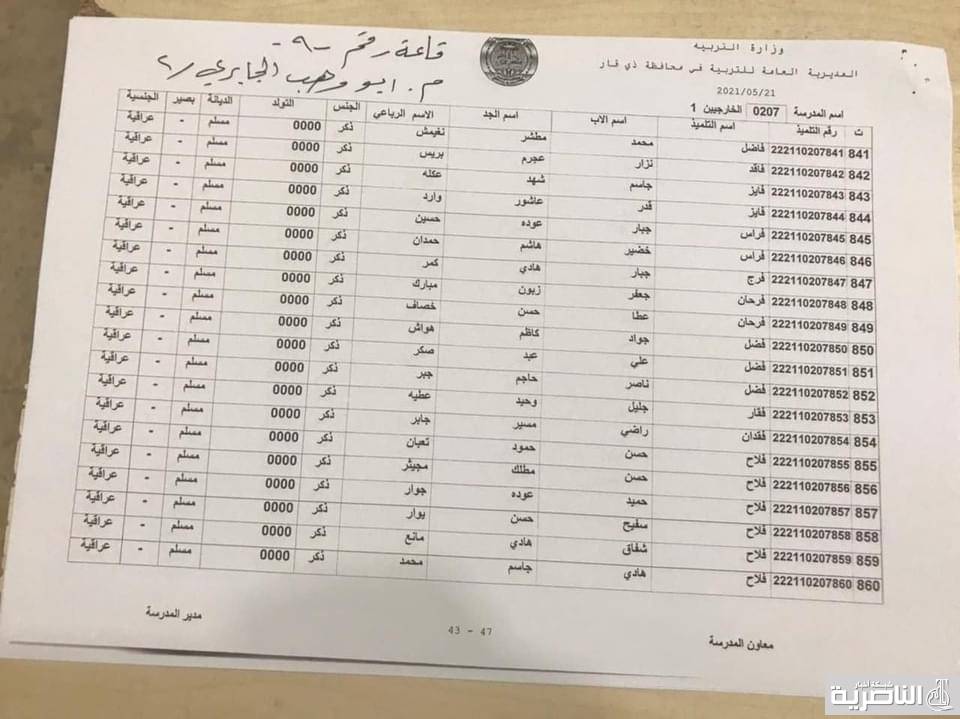 وزارة التربية
المديرية العامة للتربية في محافظة ذي قار
2021/05/21
قاعة رقم -٩-
م. ابو وهب الجابري /٢
اسم المدرسة 0207 الخارجيين 1
ت رقم التلميذ اسم التلميذ اسم الاب اسم الجد الاسم الرباعي الجنس التولد الديانة بصير الجنسية
841 222110207841 فاضل محمد مطشر نغيمش ذكر 0000 مسلم - عراقية
842 222110207842 فاقد نزار عجرم بريس ذكر 0000 مسلم - عراقية
843 222110207843 فايز جاسم شهد عكله ذكر 0000 مسلم - عراقية
844 222110207844 فايز قدر عاشور وارد ذكر 0000 مسلم - عراقية
845 222110207845 فراس جبار عوده حسين ذكر 0000 مسلم - عراقية
846 222110207846 فراس خضير هاشم حمدان ذكر 0000 مسلم - عراقية
847 222110207847 فرج جبار هادي كمر ذكر 0000 مسلم - عراقية
848 222110207848 فرحان جعفر زبون مبارك ذكر 0000 مسلم - عراقية
849 222110207849 فرحان عطا حسن خصاف ذكر 0000 مسلم - عراقية
850 222110207850 فضل جواد كاظم هواش ذكر 0000 مسلم - عراقية
851 222110207851 فضل علي عبد صكر ذكر 0000 مسلم - عراقية
852 222110207852 فضل ناصر حاجم جبر ذكر 0000 مسلم - عراقية
853 222110207853 فقار جليل وحيد عطيه ذكر 0000 مسلم - عراقية
854 222110207854 فقدان راضي مسير جابر ذكر 0000 مسلم - عراقية
855 222110207855 فلاح حسن حمود تعبان ذكر 0000 مسلم - عراقية
856 222110207856 فلاح حسن مطلك مجيثر ذكر 0000 مسلم - عراقية
857 222110207857 فلاح حميد عوده جوار ذكر 0000 مسلم - عراقية
858 222110207858 فلاح سفيح حسن بوار ذكر 0000 مسلم - عراقية
859 222110207859 فلاح شفاق هادي مانع ذكر 0000 مسلم - عراقية
860 222110207860 فلاح هادي جاسم محمد ذكر 0000 مسلم - عراقية
معاون المدرسة
مدير المدرسة
43 - 47
شبكة أخبار
الناصرية